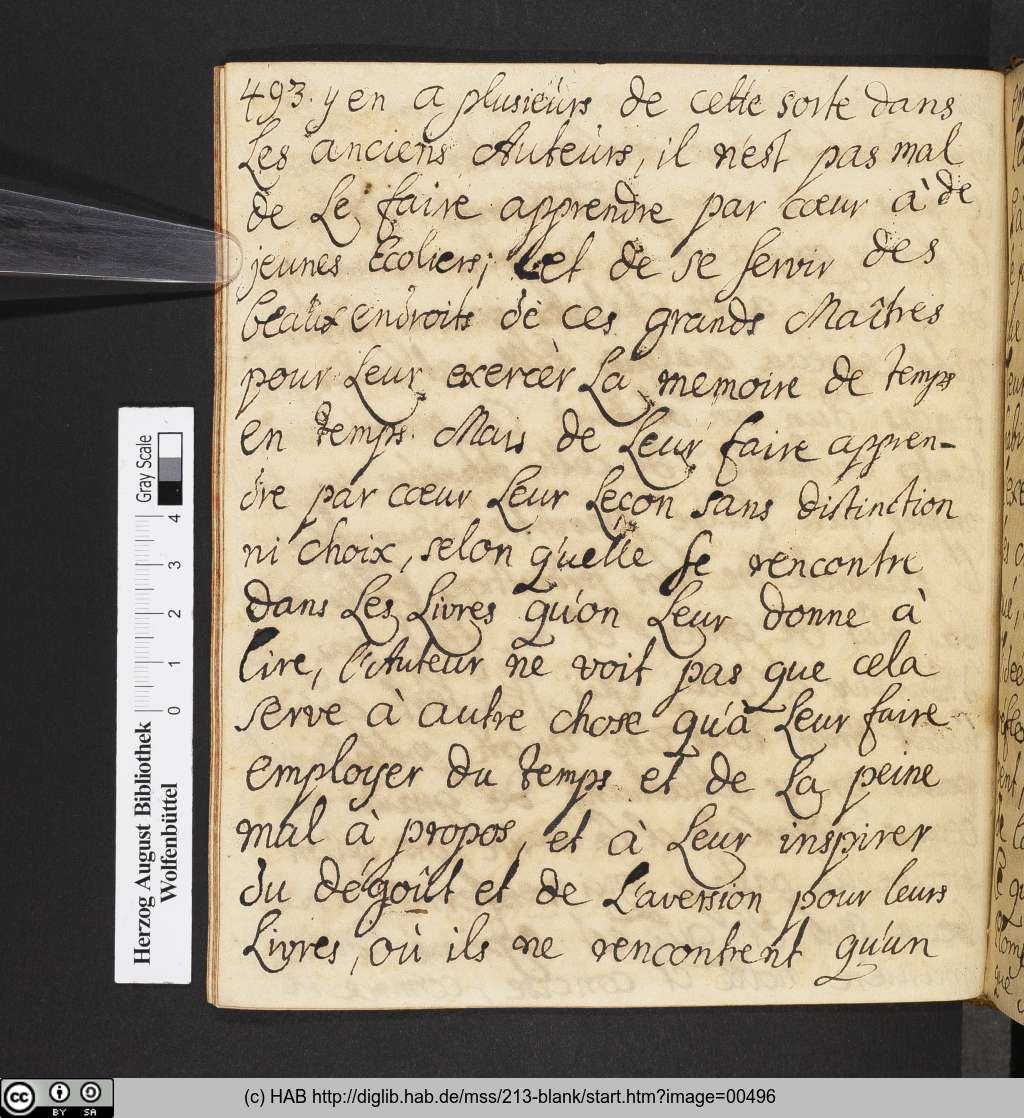 493. y en a plusieurs de cette sorte dans
Les anciens Auteurs, il n'est pas mal
de Le faire apprendre par cœur à de
jeunes Ecoliers; et de se servir des
beaux endroits de ces grands Maîtres
pour Leur exercèr La memoire de temps
en temps. Mais de Leur faire appren-
dre par cœur Leur Leçon sans distinction
ni choix, selon qu'elle se rencontre
dans Les Livres qu'on Leur donne à
lire, l'Auteur ne voit pas que cela
serve à autre chose qu'à Leur faire
employer du temps et de La peine
mal à propos, et à Leur inspirer
du dégoût et de L'aversion pour leurs
Livres, où ils ne rencontrent qu'un
Gray Scale
0 1 2 3 4
Herzog August Bibliothek
Wolfenbüttel
cc BY SA
(c) HAB http://diglib.hab.de/mss/213-blank/start.htm?image=00496